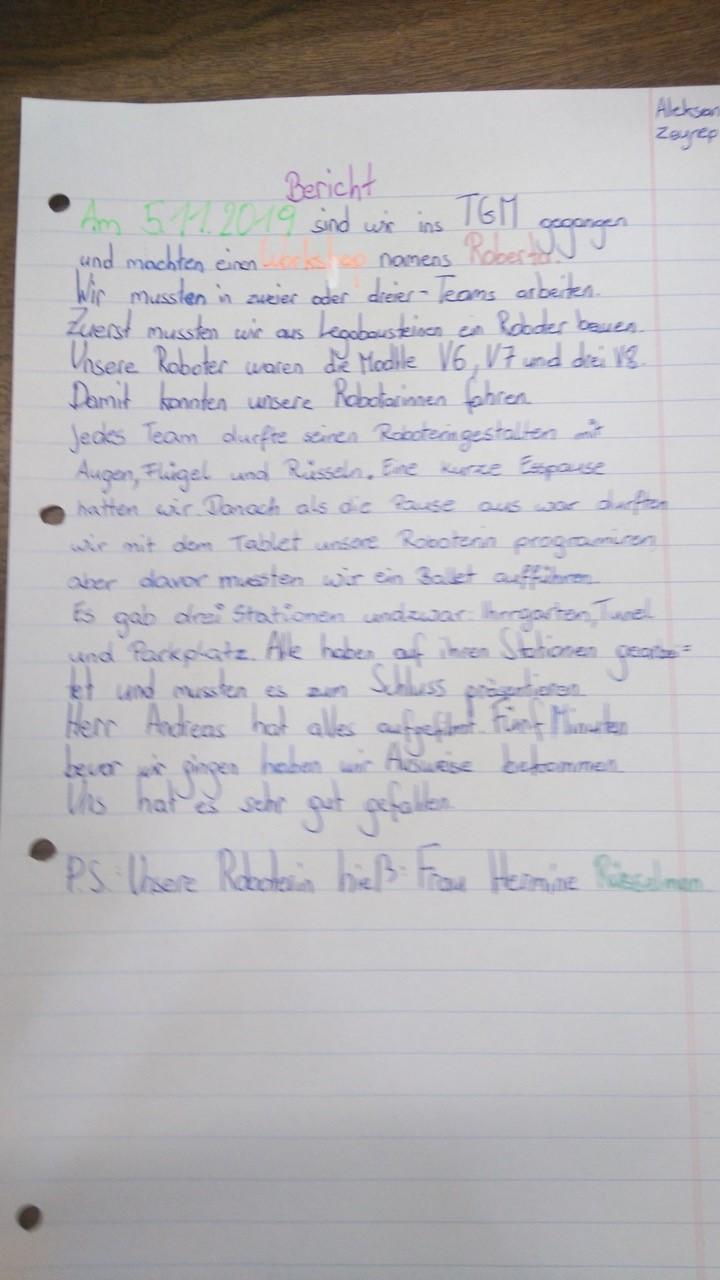 Aleksan
Zeyrep
Bericht
Am 5.11.2019 sind wir ins TGM gegangen
und machten einen Workshop namens Roberta.
Wir mussten in zweier oder dreier-Teams arbeiten.
Zuerst mussten wir aus Legobausteinen ein Roboter bauen.
Unsere Roboter waren die Modlle V6, V7 und drei V8.
Damit konnten unsere Robotorinnen fahren.
Jedes Team durfte seinen Roboterin gestallten mit
Augen, Flügel und Rüsseln. Eine kurze Esspause
hatten wir. Danach als die Pause aus war durften
wir mit dem Tablet unsere Roboterin programiren,
aber davor muesten wir ein Ballet aufführen.
Es gab drei Stationen undzwar: Ihrrgarten, Tunel
und Parkplatz. Alle haben auf ihren Stationen gearbe=
tet und mussten es zum Schluss präsentieren.
Herr Andreas hat alles aufgefilmt. Fünf Minuten
bevor wir gingen haben wir Ausweise bekommen.
Uns hat es sehr gut gefallen.
P.S.: Unsere Roboterin hieß: Frau Hermine Rüsselman